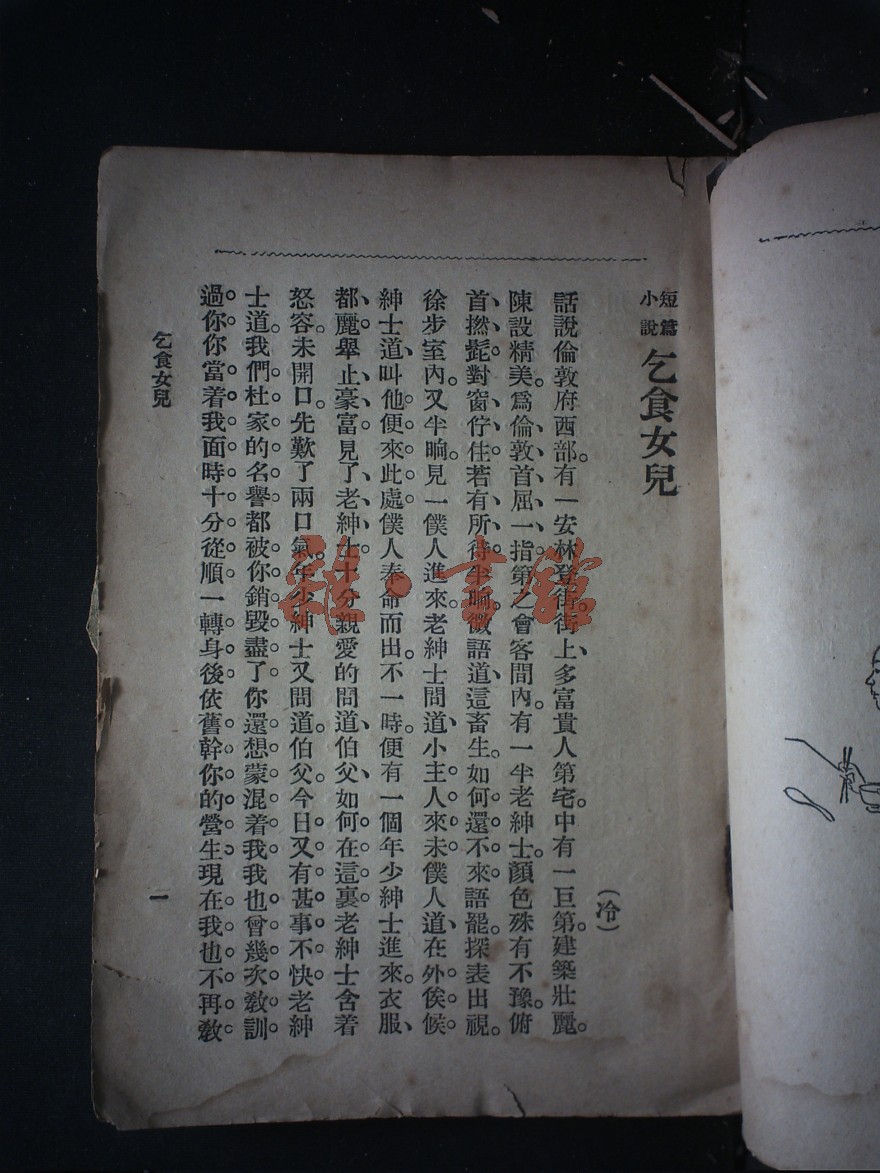 短篇
小說
乞食女兒
（冷）
話說倫敦府西部。有一安林登街。街上、多富貴人第宅。中有一巨第。建築壯麗。
陳設精美。爲倫敦首屈一指。第之會客間內。有一半老紳士。顏色殊有不豫。俯
首撚髭。對窗佇住。若有所待。半晌、微語道、這畜生。如何還不來。語罷。探表出視。
徐步室內。又半晌。見一僕人進來。老紳士問道、小主人來未。僕人道、在外俟候。
紳士道、叫他便來此處。僕人奉命而出。不一時。便有一個年少紳士進來。衣服、
都麗。舉止、豪富。見了、老紳士、十分親愛的問道、伯父、如何在這裏。老紳士含着
怒容。未開口。先歎了兩口氣。年少紳士又問道。伯父。今日又有甚事不快。老紳
士道。我們杜家的名譽都被你銷毀盡了。你還想蒙混着我。我也曾幾次教訓
過。你你當着我面時十分從順。一轉身後依舊。幹你的營生。現在。我也不再教
乞食女兒
一
雜·書館